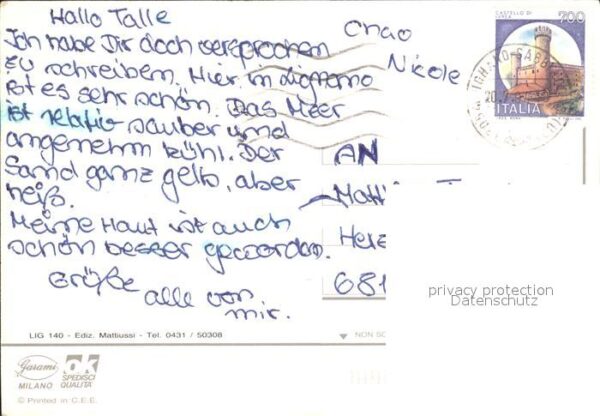 Hallo Talle
Ich habe Dir doch versprochen
zu schreiben. Hier in Lignano
ist es sehr schön. Das Meer
ist relativ sauber und
angenehm kühl. Der
Sand ganz gelb, aber
heiß.
Meine Haut ist auch
schön besser geworden.
Grüße
alle von
mir.
Ciao
Nicole
AN
681
CASTELLO DI
700
ITALIA
privacy protection
Datenschutz
LIG 140 - Ediz. Mattiussi - Tel. 0431 / 50308
NON SC
Garami
MILANO
ok
SPEDISCI
QUALITÀ
© Printed in C.E.E.